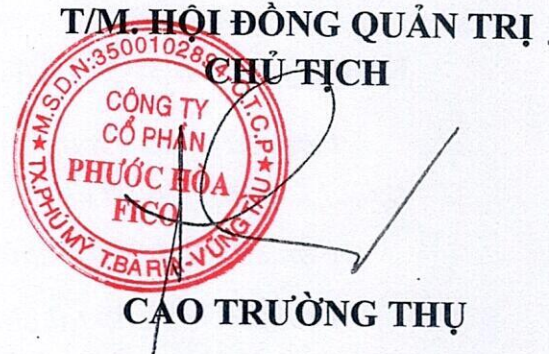 T/M. HỘI ĐỒNG QUẢN TRỊ
CHỦ TỊCH
★M.S.D.N:3500102894-C.T.C.P★
CÔNG TY
CỔ PHẦN
PHƯỚC HÒA
FICO
TX.PHÚ MỸ T.BÀ RỊA-VŨNG TÀU
CAO TRƯỜNG THỤ